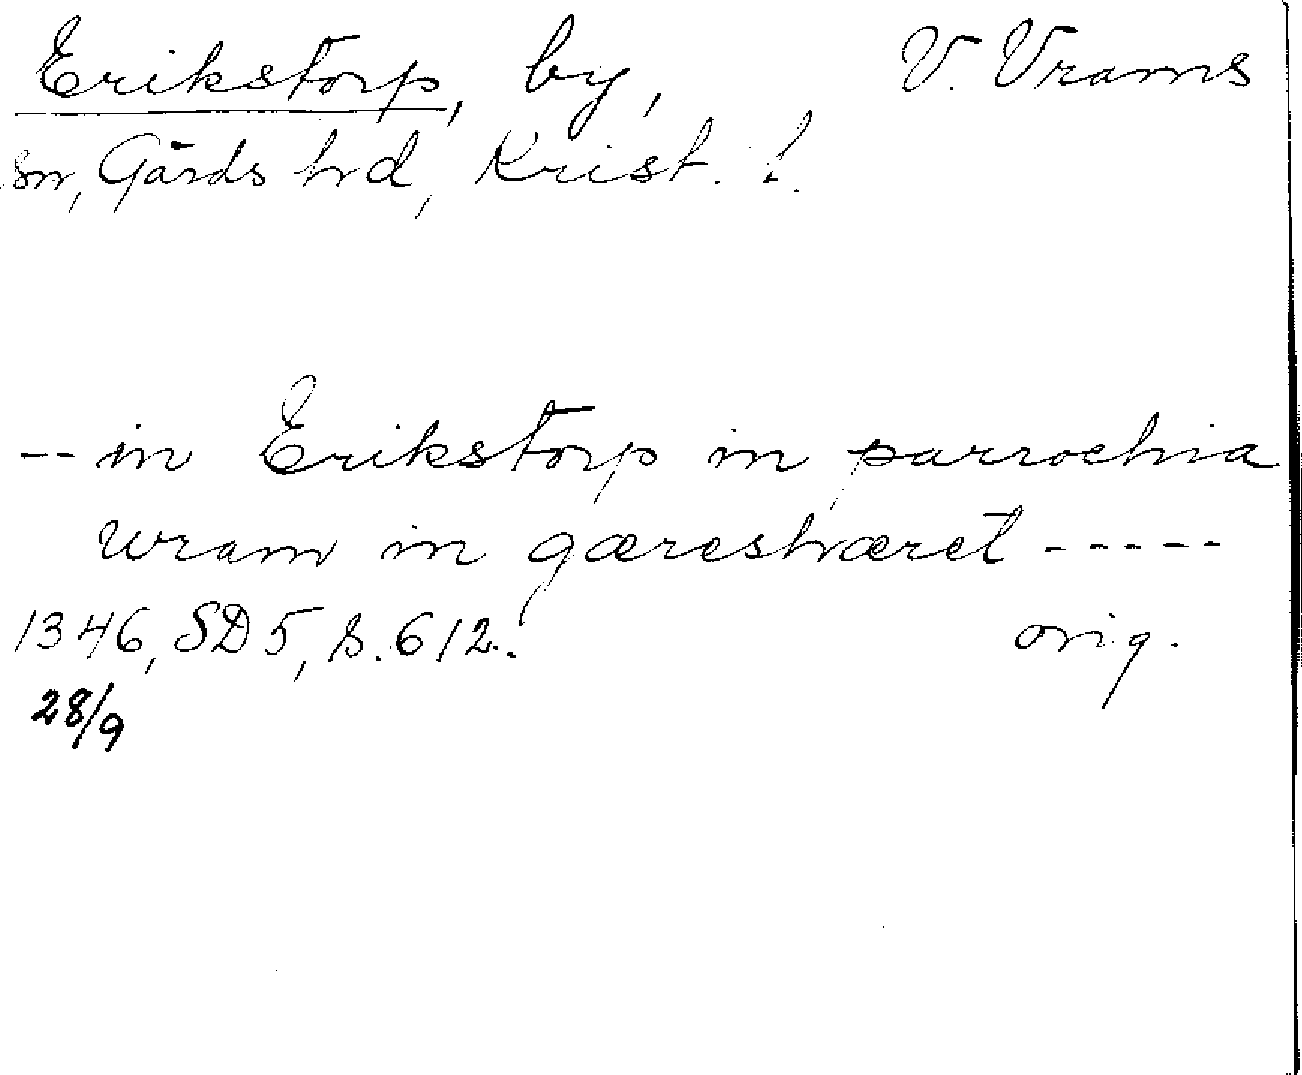 Erikstorp, by, V. Vrams
sn, Gärds hd, Krist. l.
-- in Erikstorp in parrochia
wram in gæreshæret -----
1346, SD 5, s. 612. orig.
28/9